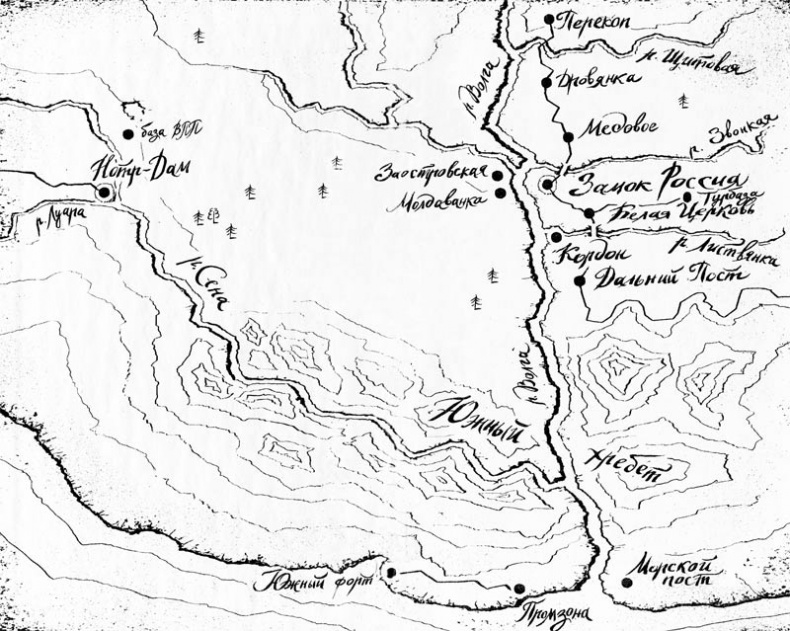 Перекоп
р. Щитовая
р. Волга
Дровянка
база ВПП
Медовое
р. Звонкая
Нотр-Дам
Заостровская
Замок Россия
Молдаванка
Турбаза
Белая Церковь
р. Луара
Кордон
р. Листвянка
р. Сена
Дальний Пост
р. Волга
Южный
хребет
Южный форт
Морской
пост
Промзона